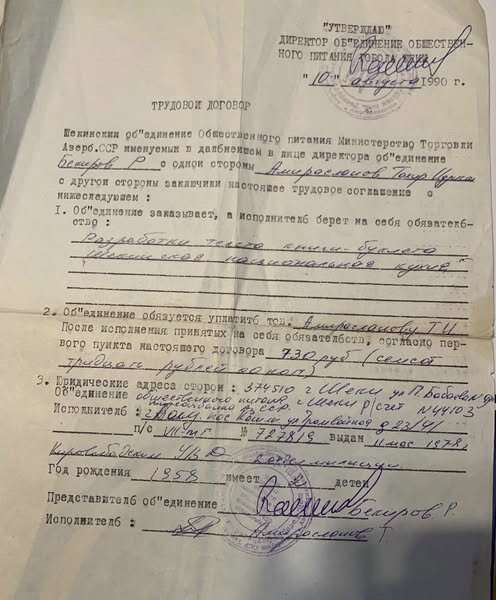 "УТВЕРЖДАЮ"
ДИРЕКТОР ОБ"ЕДИНЕНИЕ ОБЩЕСТВЕН-
НОГО ПИТАНИЯ ГОРОДА
"10" августа 1990 г.
ТРУДОВОЙ ДОГОВОР
Шекинскии об"единение Общественного питания Министерство Торговли
Азерб.ССР именуемых в далбнеишем в лице директора об"единение
Бекиров Р с однои стороны Амирасланов
с другои стороны заключили настоящее трудовое соглашение о
нижеследующем :
I. Об"единение заказывает, а исполнителб берет на себя обязателб-
ство :
Разработки текста книги-буклета
Шекинская национальная кухня"
2. Об"единение обязуется уплатитб тов. Амирасланову Т.И
После исполнения принятых на себя обязателбств, согласно пер-
вого пункта настоящего договора 730 руб (семсот
тридцать рублей 00 коп)
3. Юридические адреса сторон : 374510 г Шеки ул
Об"единение общественного питания г Шеки р/счет N 44103
Исполнителб : г. Баку пос
п/с № 727819 выдан 1978
Год рождения 1958 имеет детеи
Представителб об"единение Бекиров Р.
Исполнителб : Амирасланов Т